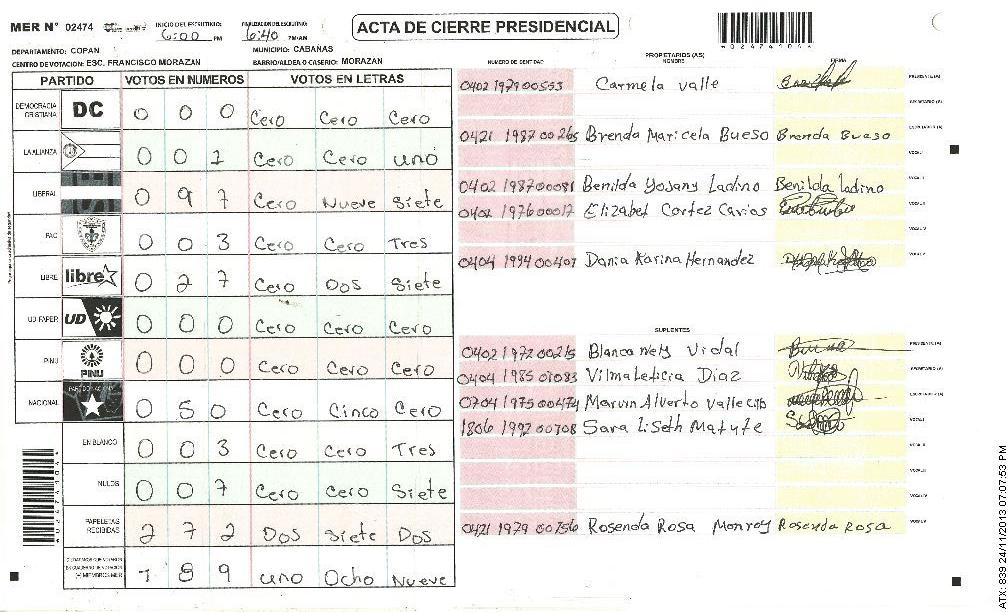 MER N° 02474 INICIO DEL ESCRUTINIO: 6:00 PM FINALIZACION DEL ESCRUTINIO: 6:40 PM/AM
ACTA DE CIERRE PRESIDENCIAL
DEPARTAMENTO: COPAN MUNICIPIO: CABAÑAS
CENTRO DE VOTACION: ESC. FRANCISCO MORAZAN BARRIO/ALDEA O CASERIO: MORAZAN
PARTIDO VOTOS EN NUMEROS VOTOS EN LETRAS
DEMOCRACIA CRISTIANA DC 0 0 0 Cero Cero Cero
LA ALIANZA 0 0 1 Cero Cero uno
LIBERAL 0 9 7 Cero Nueve Siete
PAC 0 0 3 Cero Cero Tres
LIBRE libre 0 2 7 Cero Dos Siete
UD-FAPER UD 0 0 0 Cero Cero Cero
PINU PINU 0 0 0 Cero Cero Cero
NACIONAL PARTIDO NACIONAL 0 5 0 Cero Cinco Cero
EN BLANCO 0 0 3 Cero Cero Tres
NULOS 0 0 7 Cero Cero Siete
PAPELETAS RECIBIDAS 2 7 2 Dos Siete Dos
CIUDADANOS QUE VOTARON EN CUADERNO DE VOTACION (+) MIEMBROS MER 1 8 9 uno Ocho Nueve
NUMERO DE IDENTIDAD PROPIETARIOS (AS) NOMBRE FIRMA
0402 1979 00553 Carmela Valle PRESIDENTE (A)
SECRETARIO (A)
0421 1987 00265 Brenda Maricela Bueso Brenda Bueso ESCRUTADOR (A)
VOCAL I
0402 1987 00081 Benilda Yosany Ladino Benilda ladino VOCAL II
0402 1976 00017 Elizabet Cortez Carias VOCAL III
VOCAL IV
0404 1994 00407 Dania Karina Hernandez VOCAL V
SUPLENTES
0402 1972 00215 Blanca Nely Vidal PRESIDENTE (A)
0404 1985 01083 Vilma Leticia Diaz SECRETARIO (A)
0704 1975 00474 Marvin Alverto Valle ESCRUTADOR (A)
1806 1992 00708 Sara Liseth Matute VOCAL I
VOCAL II
VOCAL III
VOCAL IV
0421 1979 00756 Rosenda Rosa Monroy Rosenda Rosa VOCAL V
024741044
ATX: 839 24/11/2013 07:07:53 PM